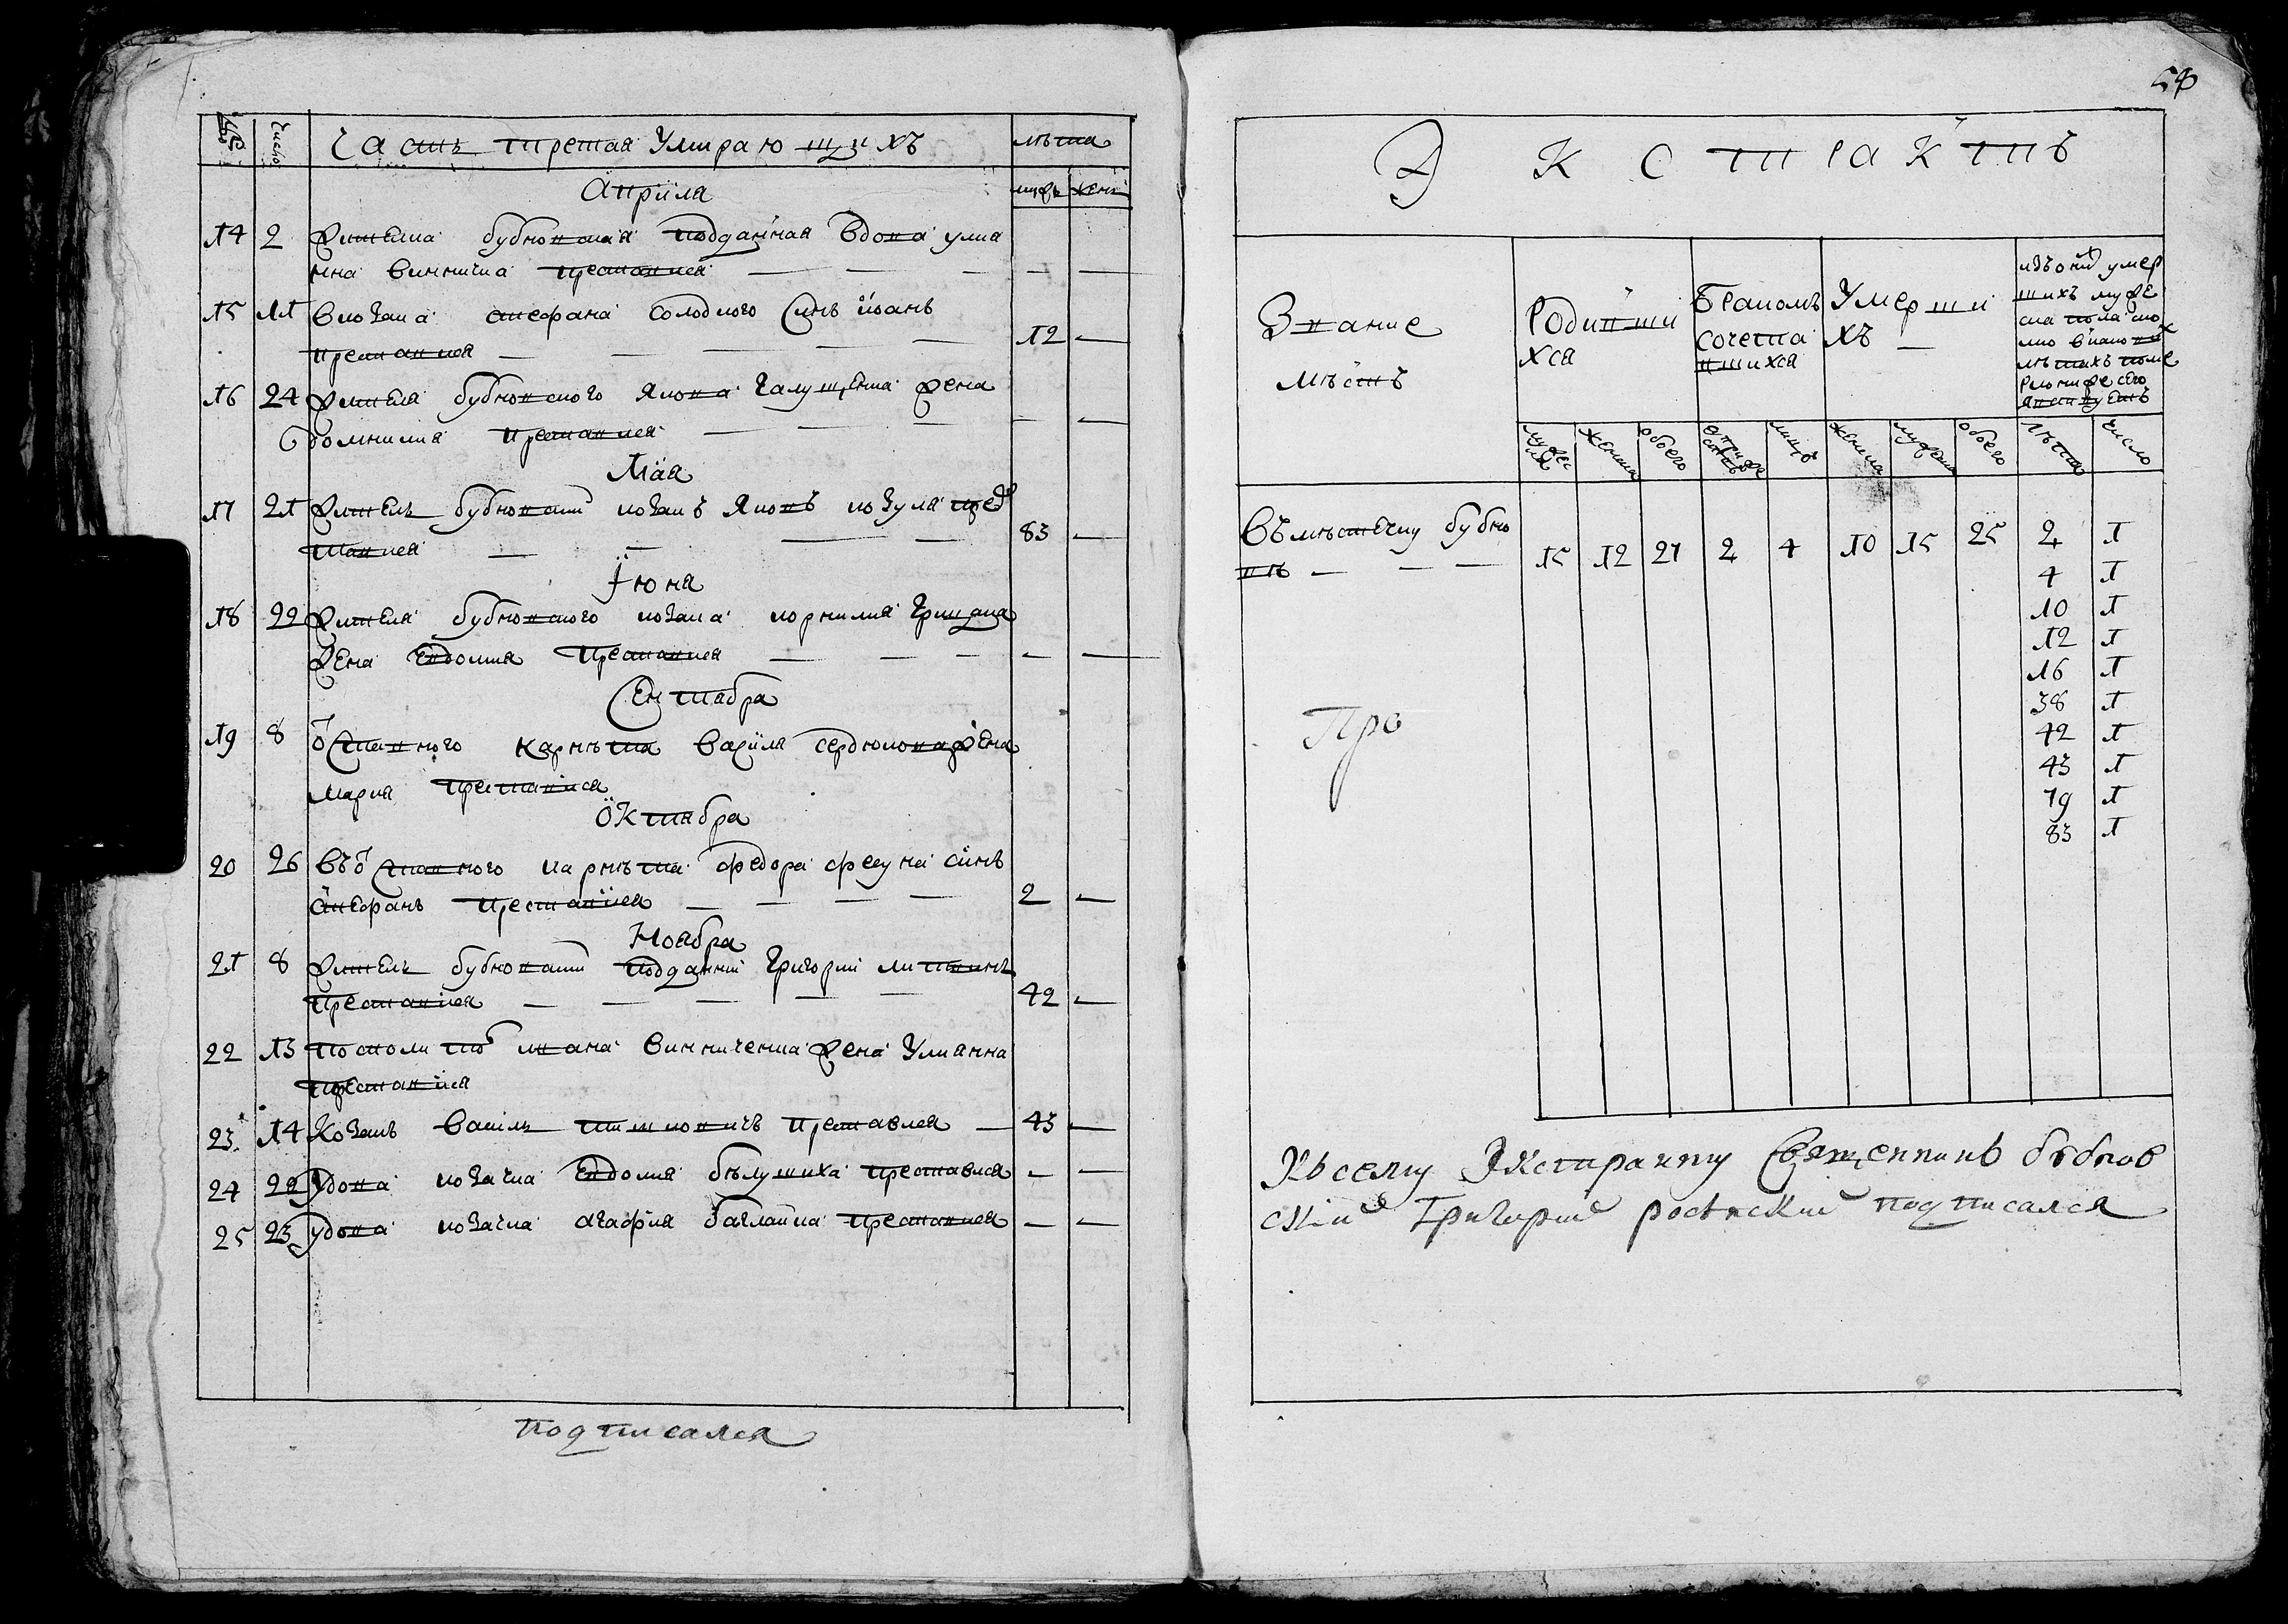 Числo
Часть третая Умирающихъ
лѣта
Апрѣля
муж жен
14 2 Жителка бубновская подданная вдова улиа
нна винничка преставися — — — — —
15 11 Козака стефана солодкого синъ иоанъ
преставися — — — — — 12 —
16 24 Жителя бубновского якова галущенка жена
домникия преставися — — — — —
Маiа
17 21 Житель бубновский козакъ яковъ козула пре
ставися — — — — 83 —
Iюня
18 22 Жителя бубновского козака корнилия грицака
жена Евдокия преставися — — — — —
Сентабра
19 8 отставного карнѣта василя сердюкова жена
мария преставися
Октабра
20 26 въ отставного карнѣта федора фесуна синъ
стефанъ преставися — — — — 2 —
Ноабра
21 8 Житель бубновский подданний григорий литвинъ
преставися — — — — — 42 —
22 13 посполитого ивана винниченка жена Улианна
преставися
23 14 Козакъ василь преставися — 43 —
24 22 Удова козачка Евдокия бѣлушиха преставися — —
25 23 удова козачка агафия баглайка преставися — —
подписался
Экстрактъ
Звание
мѣстъ
Родивши
хся
Бракомъ
сочета
вшихся
Умерши
хъ —
изъ онихъ умер
шихъ муже
ска пола ско
лко в каковихъ
лѣтахъ поме
рло ниже сего
явствуетъ
женска обоего женска мужеска обоего лѣта число
Въ мѣстечку бубно
вѣ — — — 15 12 27 2 4 10 15 25 2 1
4 1
10 1
12 1
16 1
38 1
42 1
43 1
79 1
83 1
Про
Къ сему Экстракту Священникъ бубнов
скiй Григорий росѣвский подписался